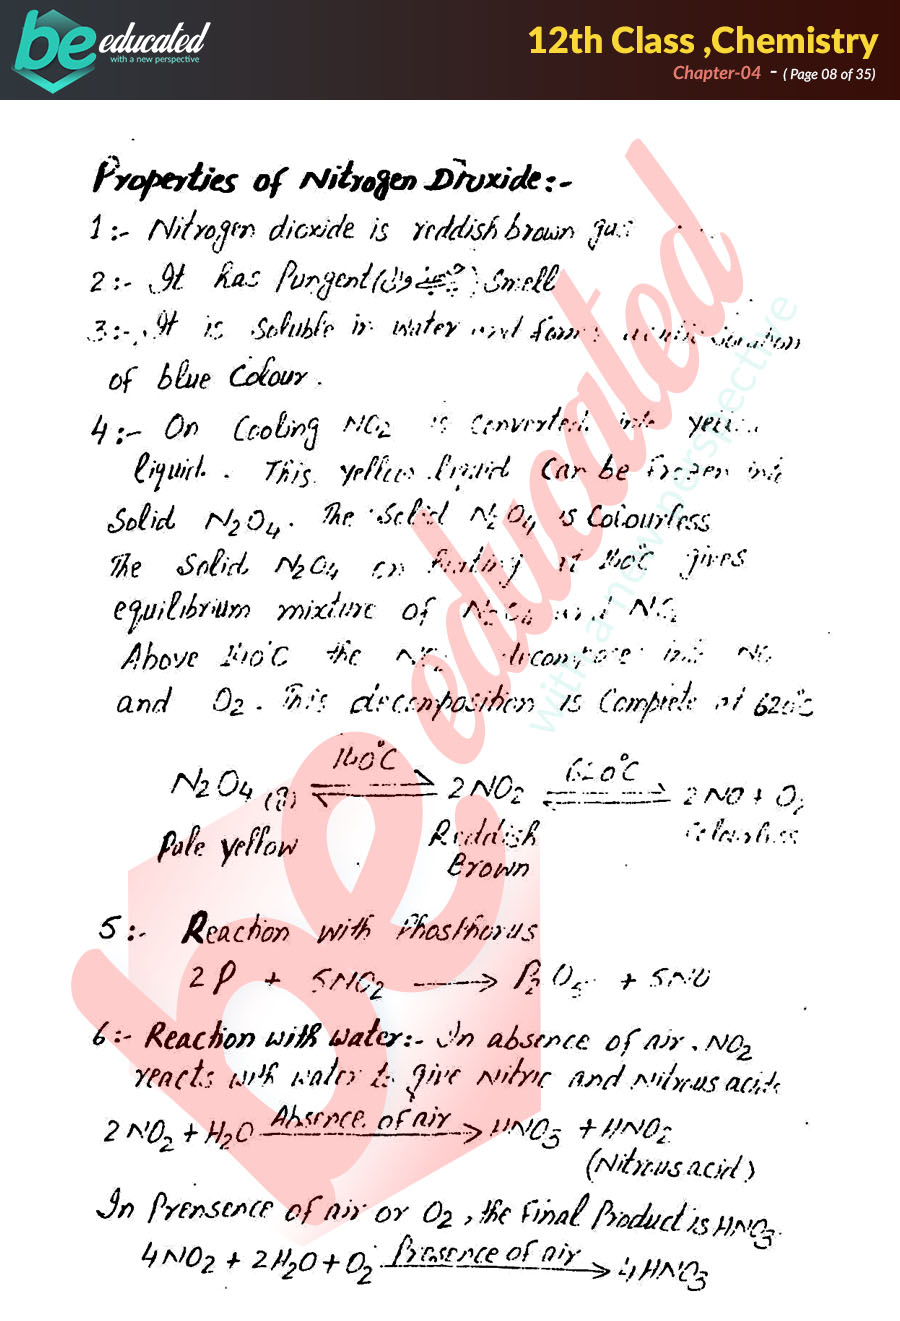 be educated
with a new perspective
12th Class ,Chemistry
Chapter-04 - ( Page 08 of 35)
Properties of Nitrogen Dioxide:-
1:- Nitrogen dioxide is reddish brown gas
2:- It has Pungent( ) Smell
3:- It is Soluble in water and forms acidic solution
of blue Colour.
4:- On Cooling NO2 is converted into yellow
liquid. This yellow liquid Can be frozen into
Solid N2O4. The Solid N2O4 is Colourless
The Solid N2O4 on heating at 140°C gives
equilibrium mixture of N2O4 and NO2
Above 140°C the NO2 decompose into NO
and O2. This decomposition is Complete at 620°C
N2O4 (g) ⇌ 140°C 2NO2 ⇌ 620°C 2NO + O2
Pale yellow Reddish Brown Colourless
5:- Reaction with Phosthorus
2P + 5NO2 → P2O5 + 5NO
6:- Reaction with water:- In absence of air. NO2
reacts with water to give Nitric and Nitrous acids
2NO2 + H2O Absence of air → HNO3 + HNO2
(Nitrous acid)
In Prensence of air or O2, the Final Product is HNO3.
4NO2 + 2H2O + O2 Presence of air → 4HNO3
be educated
with a new perspective